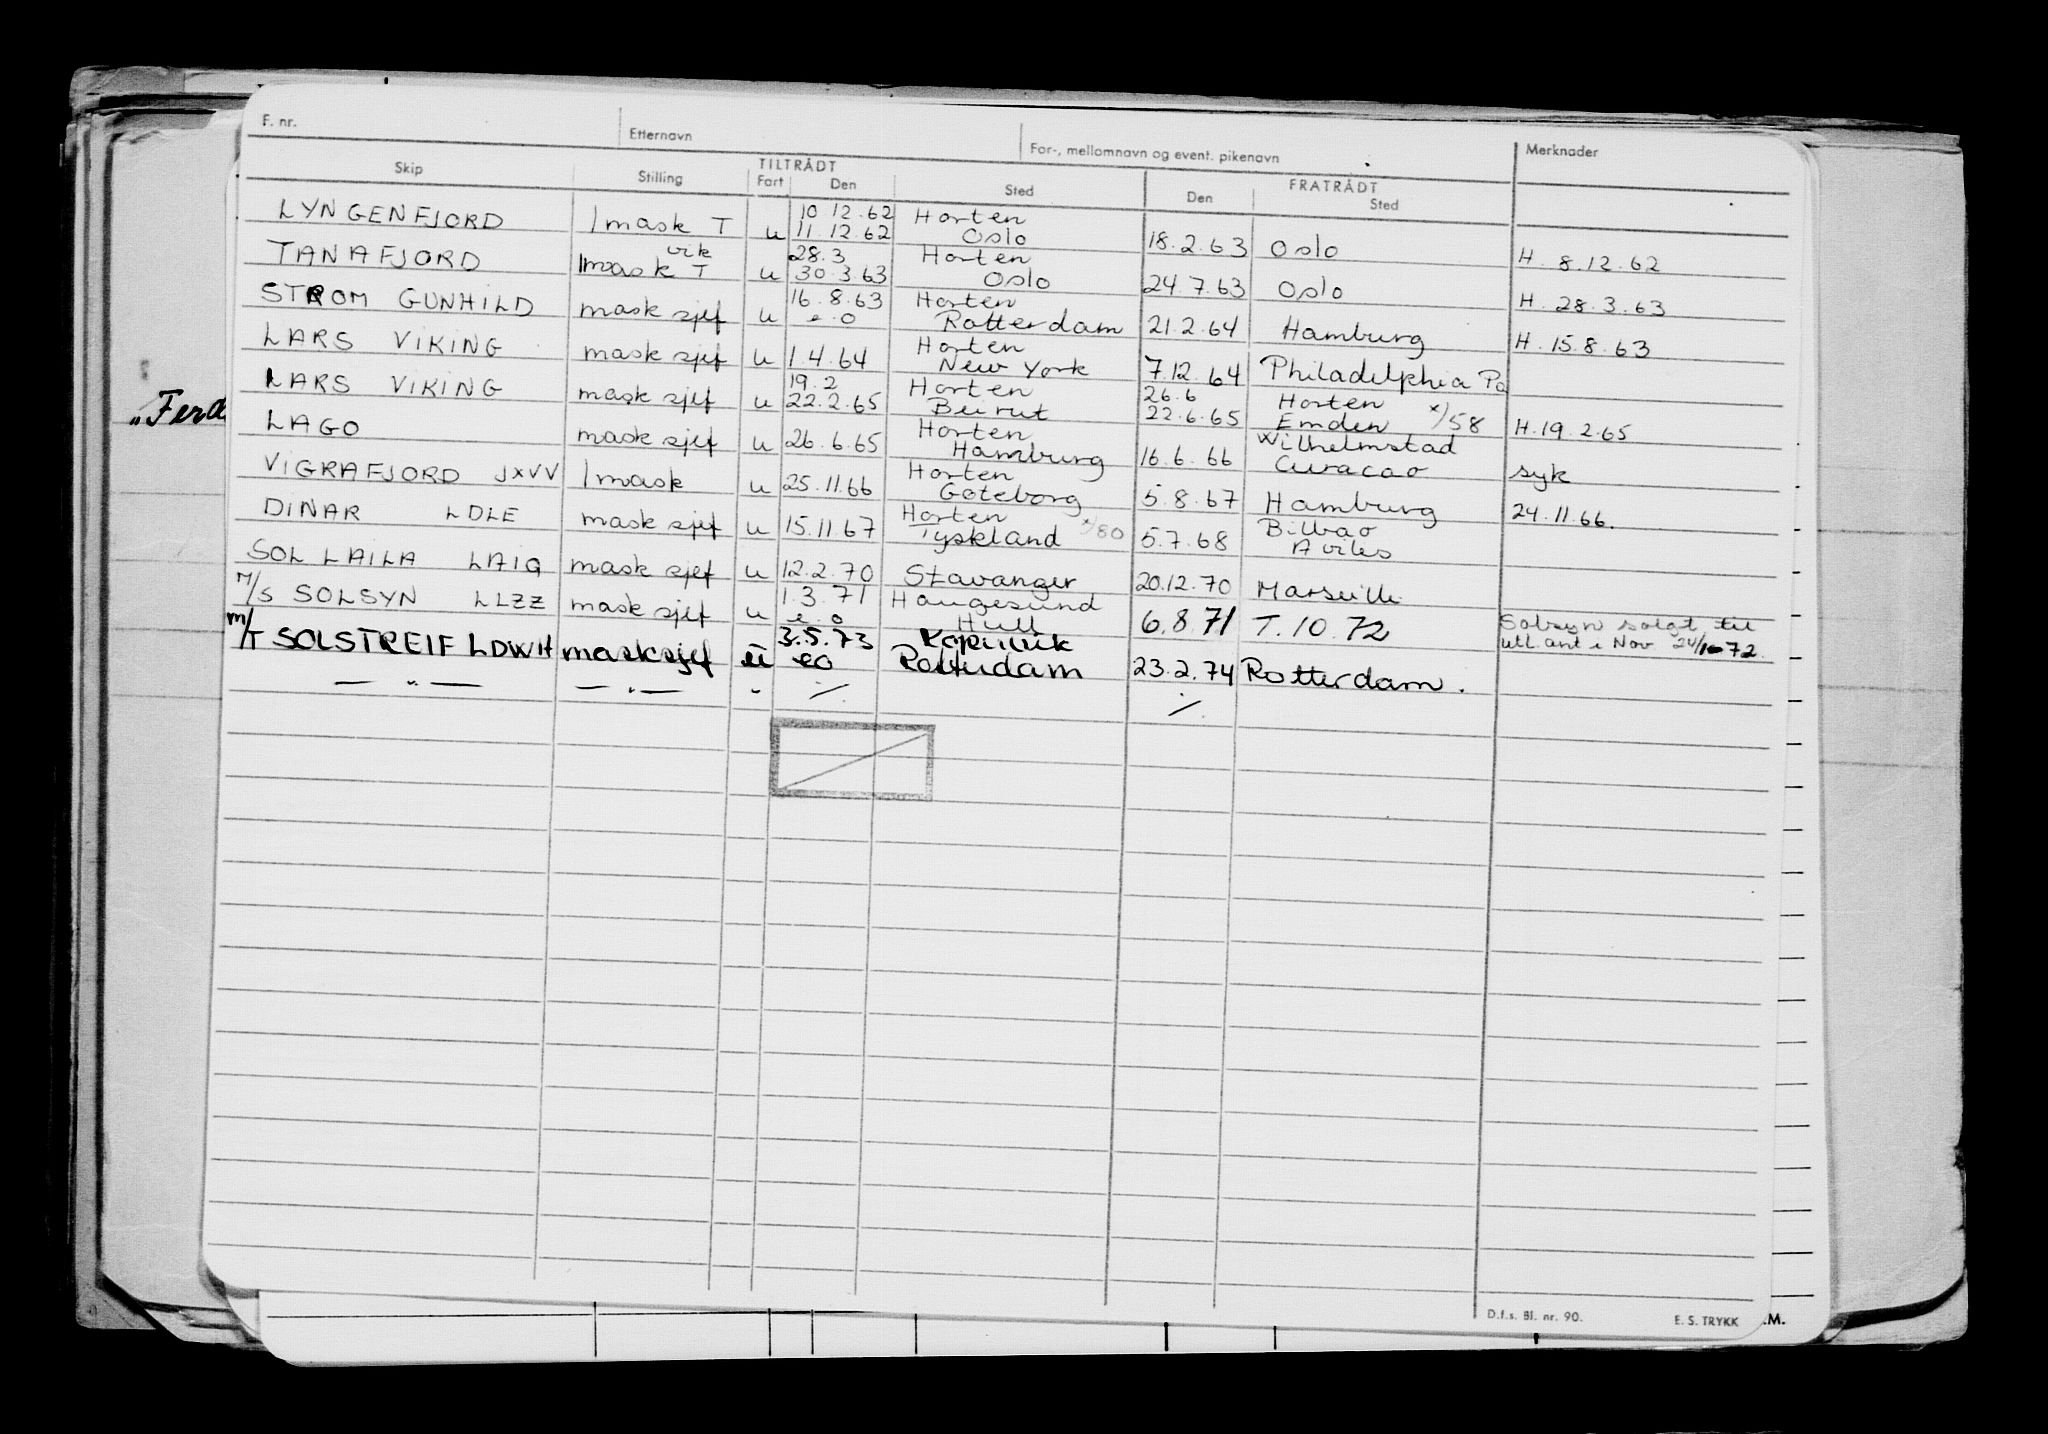 F. nr. Etternavn For-, mellomnavn og event. pikenavn Merknader
TILTRÅDT FRATRÅDT
Skip Stilling Fart Den Sted Den Sted
LYNGENFJORD 1 mask T u 10 12.62 Horten
11.12.62 Oslo 18.2.63 Oslo H. 8.12.62
TANAFJORD 1 mask vik T u 28.3 Horten
30.3.63 Oslo 24.7.63 Oslo H. 28.3.63
STROM GUNHILD mask sjef u 16.8.63 Horten
e.o Rotterdam 21.2.64 Hamburg H. 15.8.63
LARS VIKING mask sjef u 1.4.64 Horten
New York 7.12.64 Philadelphia Pa
LARS VIKING mask sjef u 19.2 Horten 26.6 Horten
22.2.65 Beirut 22.6.65 Emden x)/58 H.19.2.65
LAGO mask sjef u 26.6.65 Horten Wilhelmstad
Hamburg 16.6.66 Curacao syk
VIGRAFJORD JXVV 1 mask u 25.11.66 Horten
Gøteborg 5.8.67 Hamburg 24.11.66.
DINAR LDLE mask sjef u 15.11.67 Horten Bilbao
Tyskland x)/80 5.7.68 Aviles
SOL LAILA LAIG mask sjef u 12.2.70 Stavanger 20.12.70 Marseille
M/S SOLSYN LLZZ mask sjef u 1.3.71 Haugesund
e.o Hull 6.8.71 T.10.72 Solsyn solgt til
utl. ant i Nov 24/10-72.
m/T SOLSTREIF LDWH mask sjef u 3.5.73
eo Rotterdam 23.2.74 Rotterdam.
— " — — " — " ./. ./.
"Ferd
D.f.s. Bl. nr. 90. E. S. TRYKK .M.